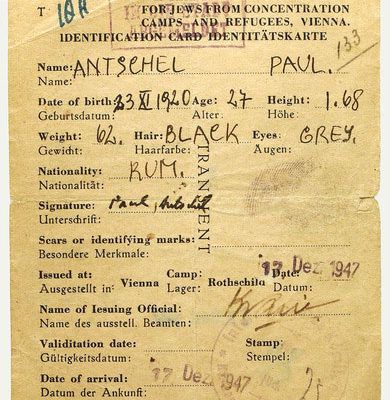 T FOR JEWS FROM CONCENTRATION
CAMPS AND REFUGEES, VIENNA.
IDENTIFICATION CARD IDENTITÄTSKARTE
133
Name: ANTSCHEL PAUL.
Name:
Date of birth: 23 XI 1920 Age: 27 Height: 1.68
Geburtsdatum: Alter: Höhe:
Weight: 62. Hair: BLACK Eyes: GREY.
Gewicht: Haarfarbe: Augen:
Nationality: RUM.
Nationalität:
TRANSIENT
Signature: Paul Antschel
Unterschrift:
Scars or identifying marks:
Besondere Merkmale:
Issued at: Camp: Date: 17 Dez. 1947
Ausgestellt in: Vienna Lager: Rothschild Datum:
Name of Iesuing Official:
Name des ausstell. Beamten:
Validitation date: Stamp:
Gültigkeitsdatum: Stempel:
Date of arrival: 17 Dez 1947
Datum der Ankunft: